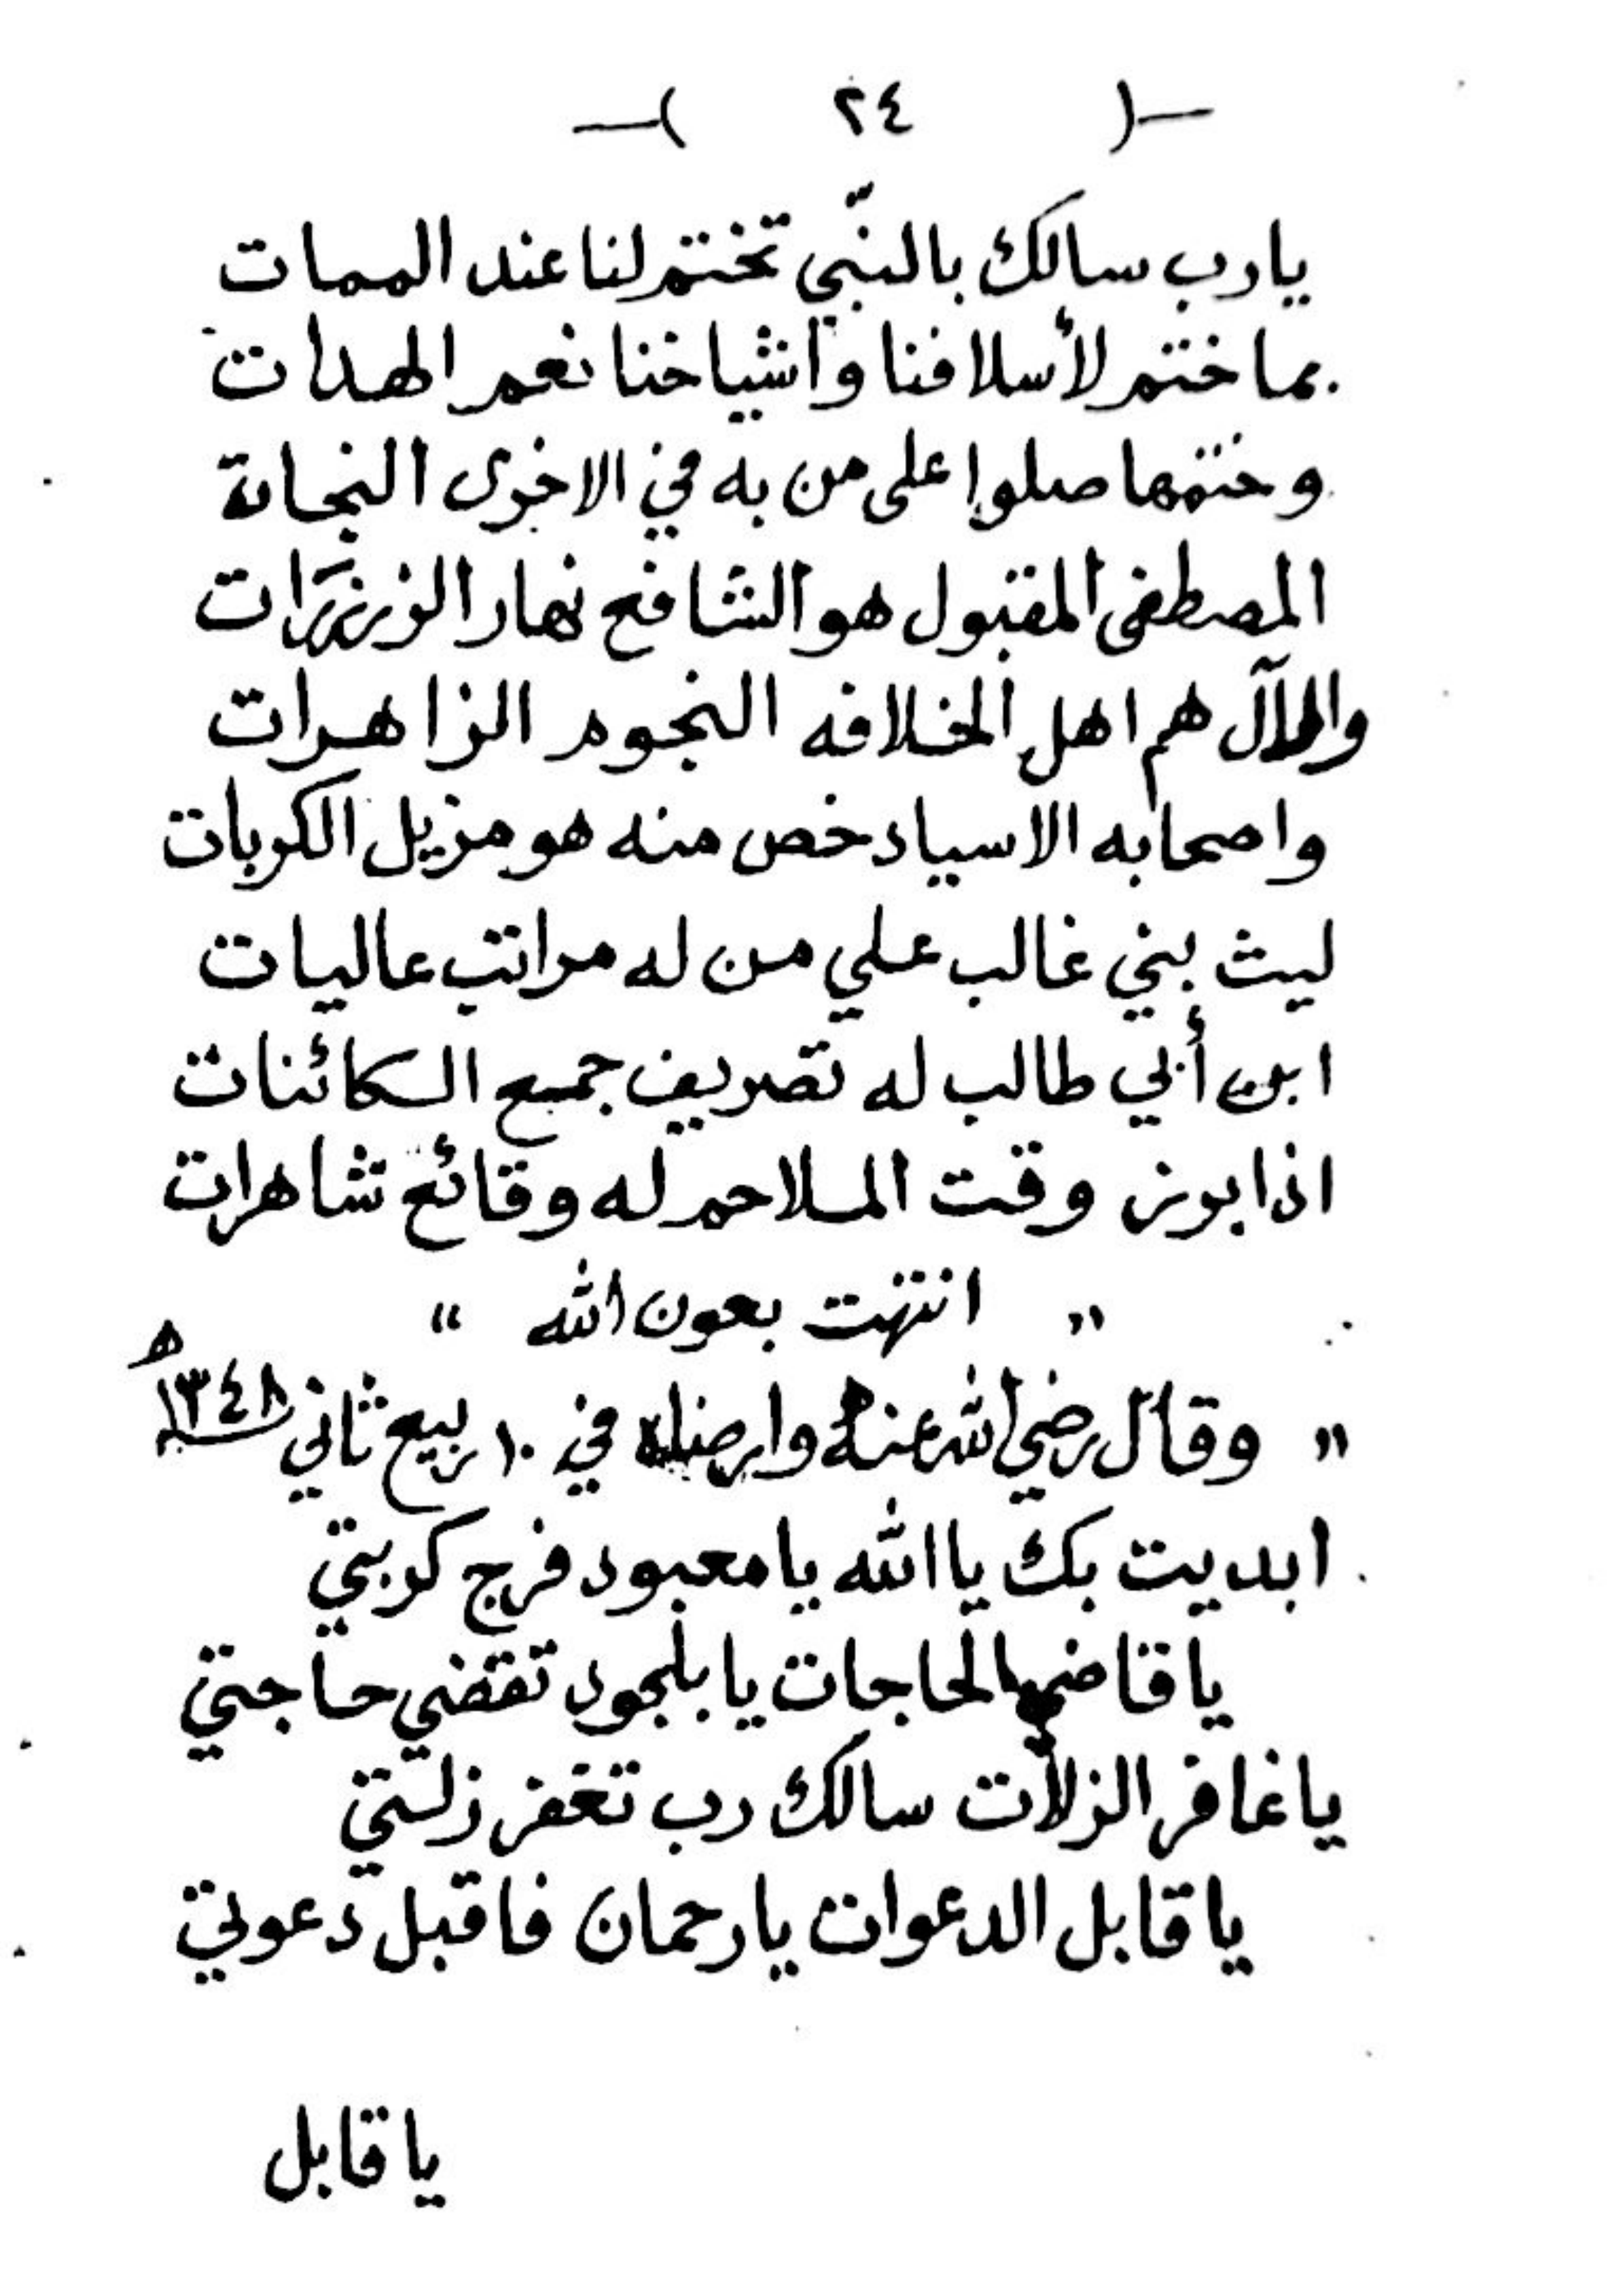 —( ٢٤ )—
يارب سالك بالنبّي تختم لنا عند الممات
بما ختم لأسلافنا وأشياخنا نعم الهدات
وختمها صلوا على من به في الاخرى النجاة
المصطفى المقبول هو الشافع نهار الزرزرات
والآل هم اهل الخلافه النجوم الزاهرات
واصحابه الاسياد خص منه هو مزيل الكربات
ليث بني غالب علي من له مراتب عاليات
ابن أبي طالب له تصريف جميع الكائنات
اذا برز وقت الملاحم له وقائع شاهرات
" انتهت بعون الله "
" وقال رضي الله عنه وارضاه في ١٠ ربيع ثاني سنة ١٣٤٨ هـ
ابديت بك يا الله يا معبود فرج كربتي
يا قاضي الحاجات يا بلجود تقضي حاجتي
يا غافر الزلات سالك رب تغفر زلتي
يا قابل الدعوات يا رحمان فاقبل دعوتي
يا قابل